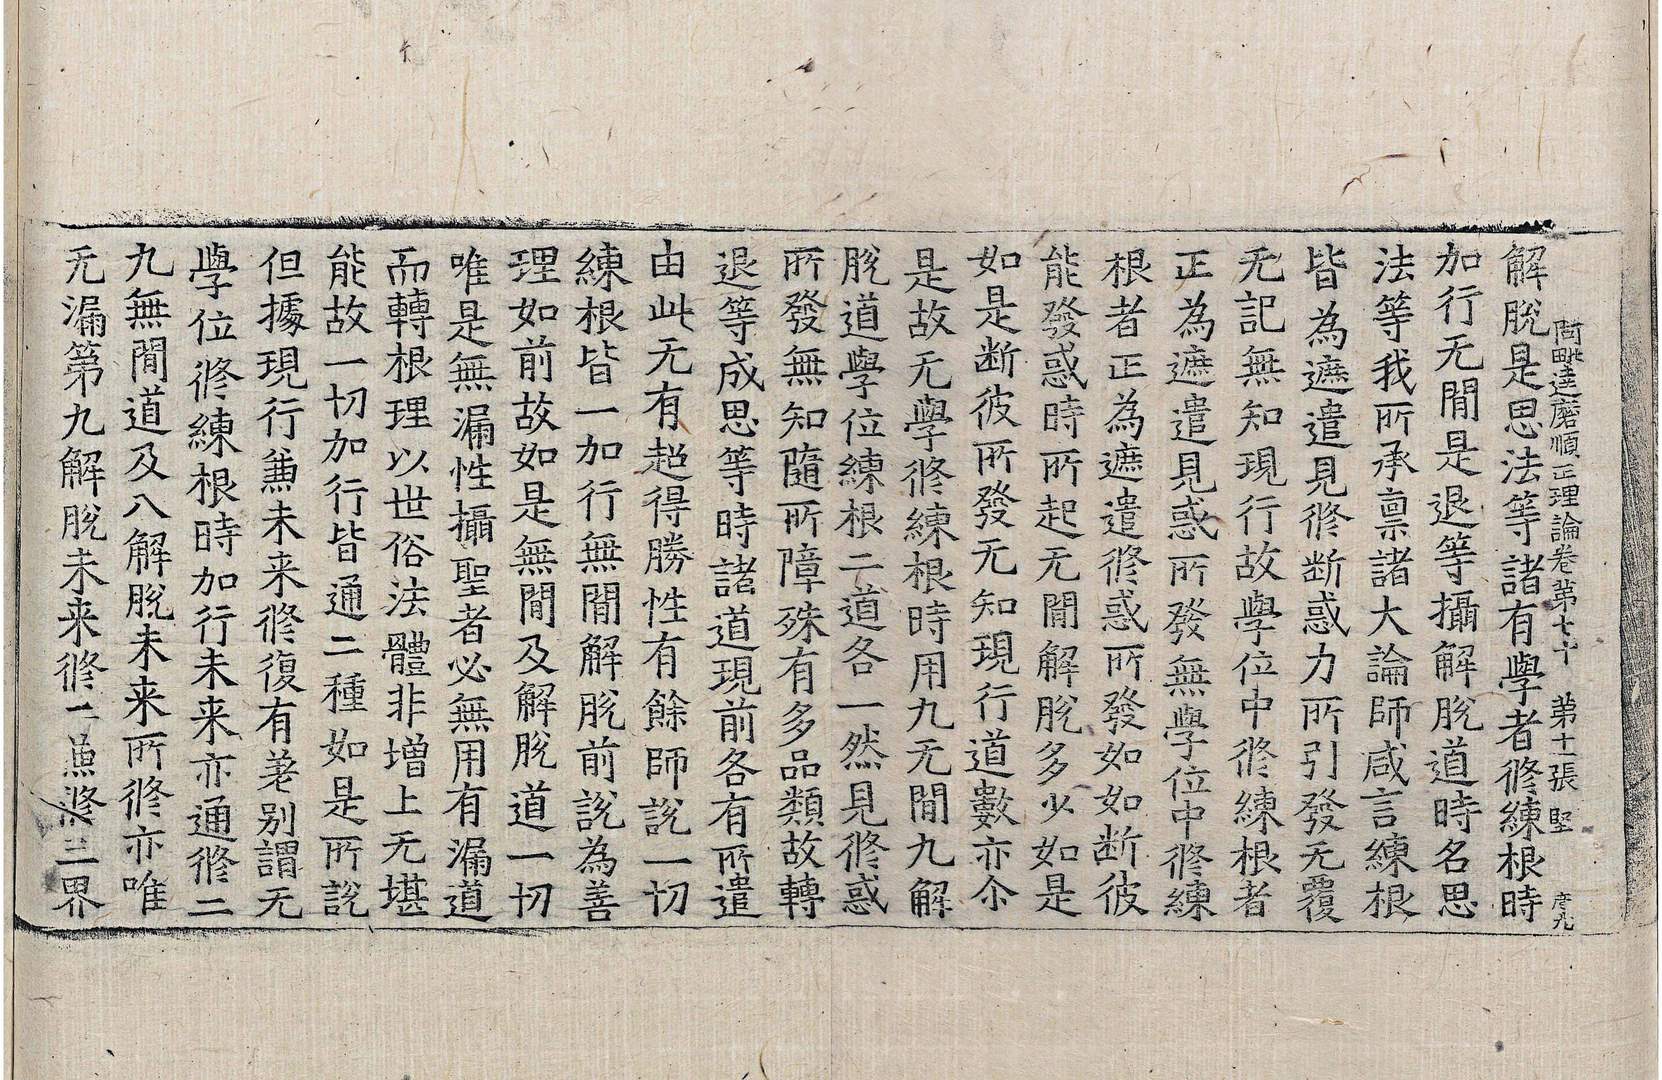 阿毗達磨順正理論卷第七十　第十一張　堅　彦九
解脫是思法等諸有學者修練根時
加行无閒是退等攝解脫道時名思
法等我所承禀諸大論師咸言練根
皆為遮遣見修断惑力所引發无覆
无記無知現行故學位中修練根者
正為遮遣見惑所發無學位中修練
根者正為遮遣修惑所發如如断彼
能發惑時所起无閒解脫多少如是
如是断彼所發无知現行道數亦尒
是故无學修練根時用九无閒九解
脫道學位練根二道各一然見修惑
所發無知隨所障殊有多品類故轉
退等成思等時諸道現前各有所遣
由此无有超得勝性有餘師說一切
練根皆一加行無閒解脫前說為善
理如前故如是無閒及解脫道一切
唯是無漏性攝聖者必無用有漏道
而轉根理以世俗法體非增上无堪
能故一切加行皆通二種如是所說
但據現行兼未来修復有差别謂无
學位修練根時加行未来亦通修二
九無閒道及八解脫未来所修亦唯
无漏第九解脫未来修二兼修三界